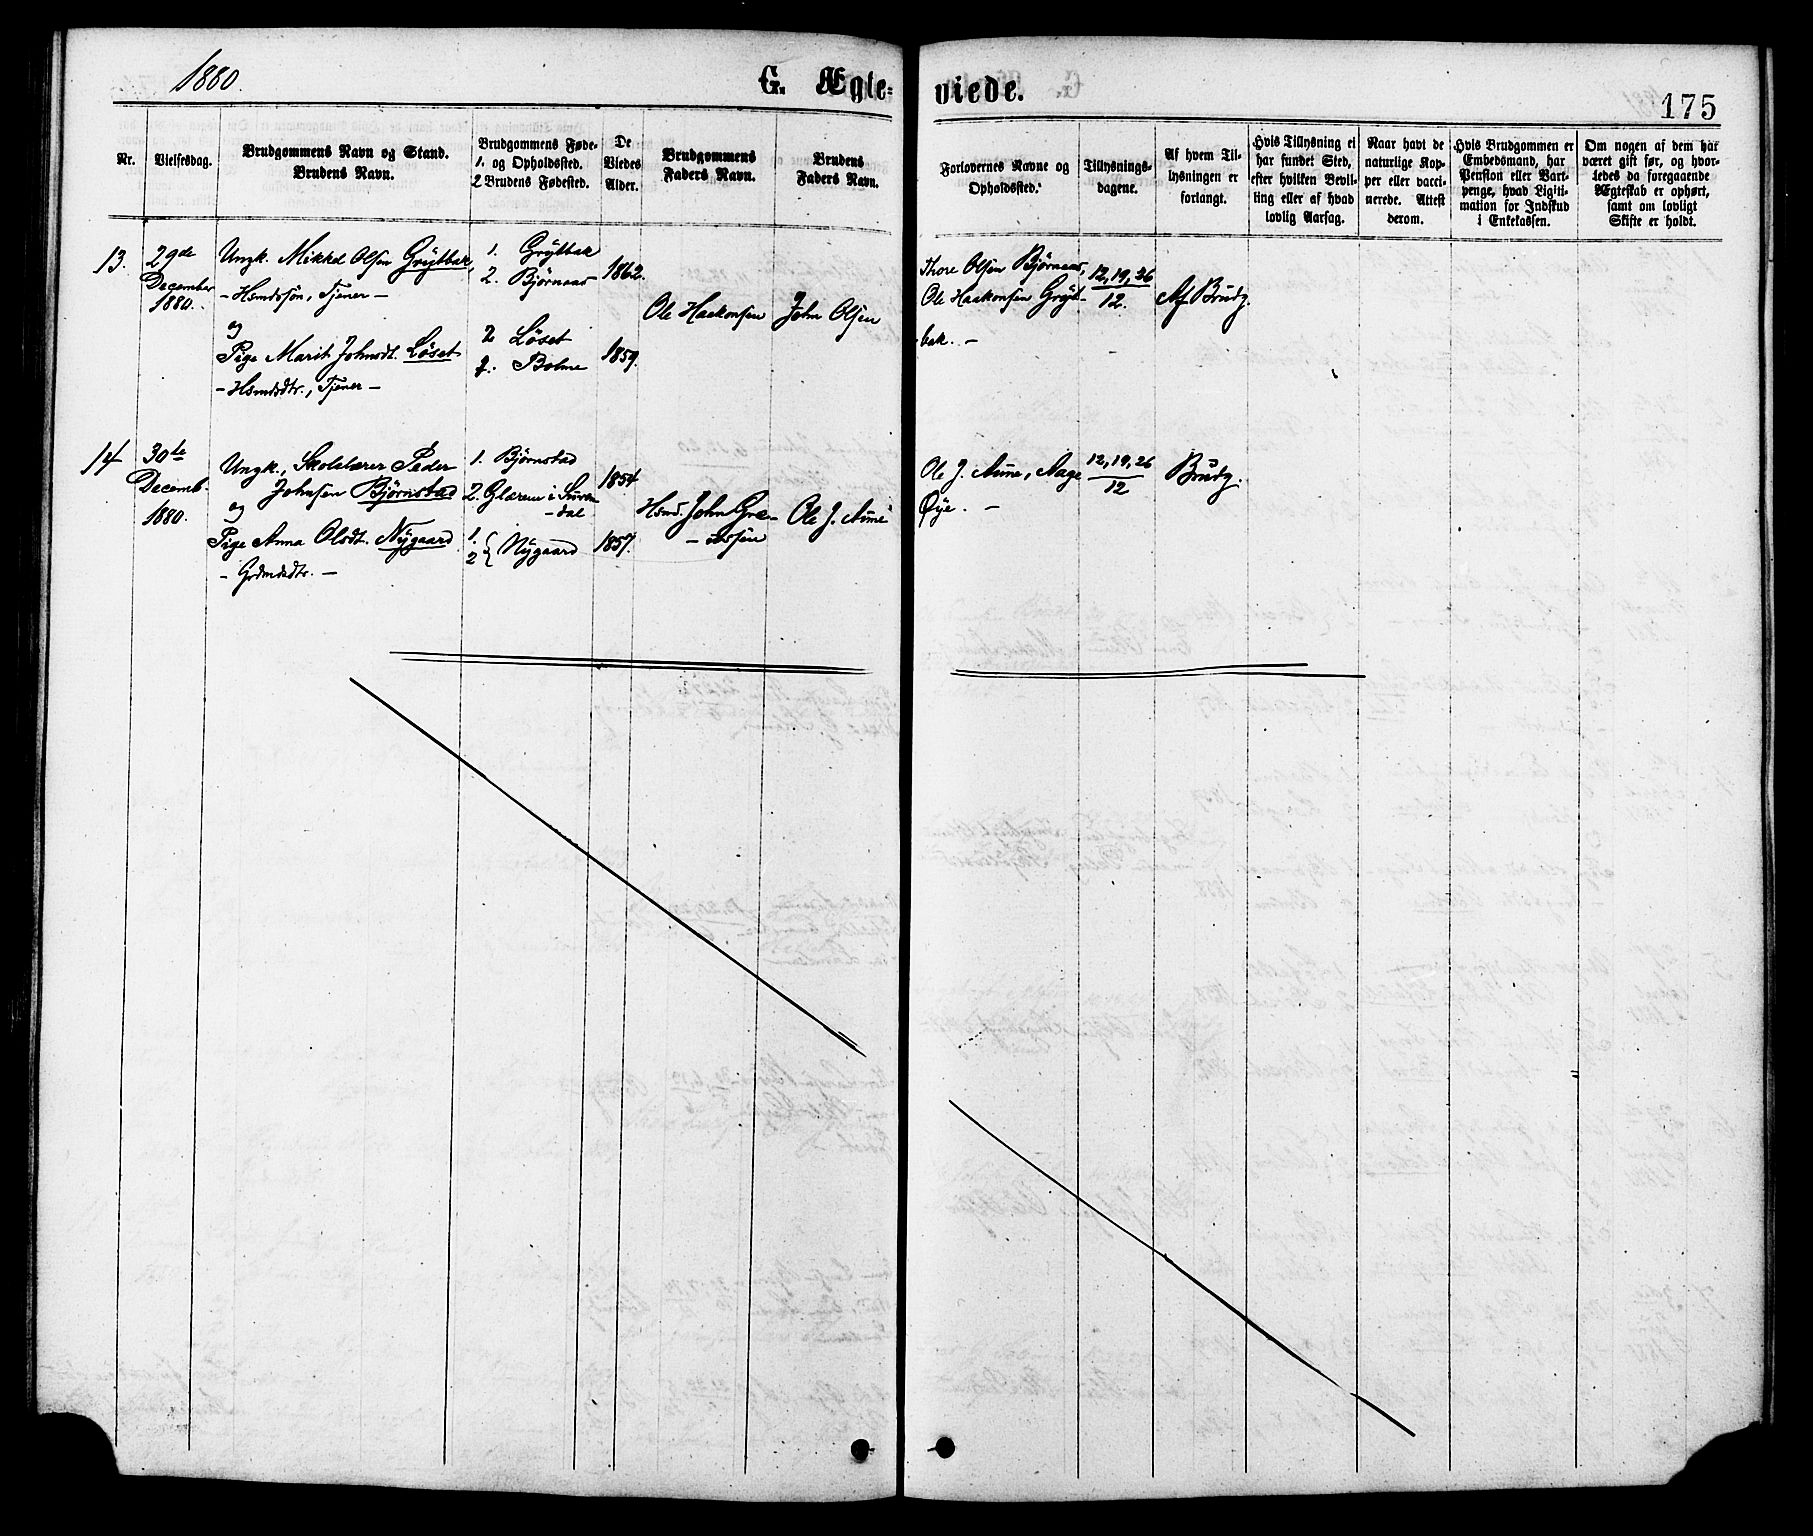 1880.
G. Ægte-
viede.
175
Nr.
Vielsesdag.
Brudgommens Navn og Stand.
Brudens Navn.
Brudgommens Føde-
1. og Opholdssted.
2 Brudens Fødested.
De
Viedes
Alder.
Brudgommens
Faders Navn.
Brudens
Faders Navn.
Forlovernes Navne og
Opholdssted.
Tillysnings-
dagene.
Af hvem Til-
lysningen er
forlangt.
Hvis Tillysning ei
har fundet Sted,
efter hvilken Bevil-
ling eller af hvad
lovlig Aarsag.
Naar havt de
naturlige Kop-
per eller vacci-
nerede. Attest
derom.
Hvis Brudgommen er
Embedsmand, har
Pension eller Vart-
penge, hvad Ligiti-
mation for Indskud
i Enkekassen.
Om nogen af dem har
været gift før, og hvor-
ledes da foregaaende
Ægteskab er ophørt,
samt om lovligt
Skifte er holdt.
13.
29de
December
1880.
Ungk. Mikkel Olsen Grýtbak,
- Hsmdssøn, Tjener -
og
Pige Marit Johnsdt. Løset
- Hsmdsdtr., Tjener -
1. Grýtbak
2. Bjørnaas
2 Løset
Bolme
1862.
1859.
Ole Haakonsen
John Olsen
Thore Olsen Bjørnaas,
Ole Haakonsen Grýt-
bak. -
12, 19, 26
12.
Af Brudg.
14
30te
Decemb.
1880.
Ungk., Skolelærer Peder
Johnsen Bjørnstad
og
Pige Anna Olsdt. Nýgaard
- Grdmdsdtr. -
1. Bjørnstad
2. Glærem i Suren
- dal
1.
2 { Nýgaard
1854
1857.
Hsmd. John Græ-
Ole J. Aune
Ole J. Aune, Aage
Øye. -
12, 19, 26
12
Brudg.